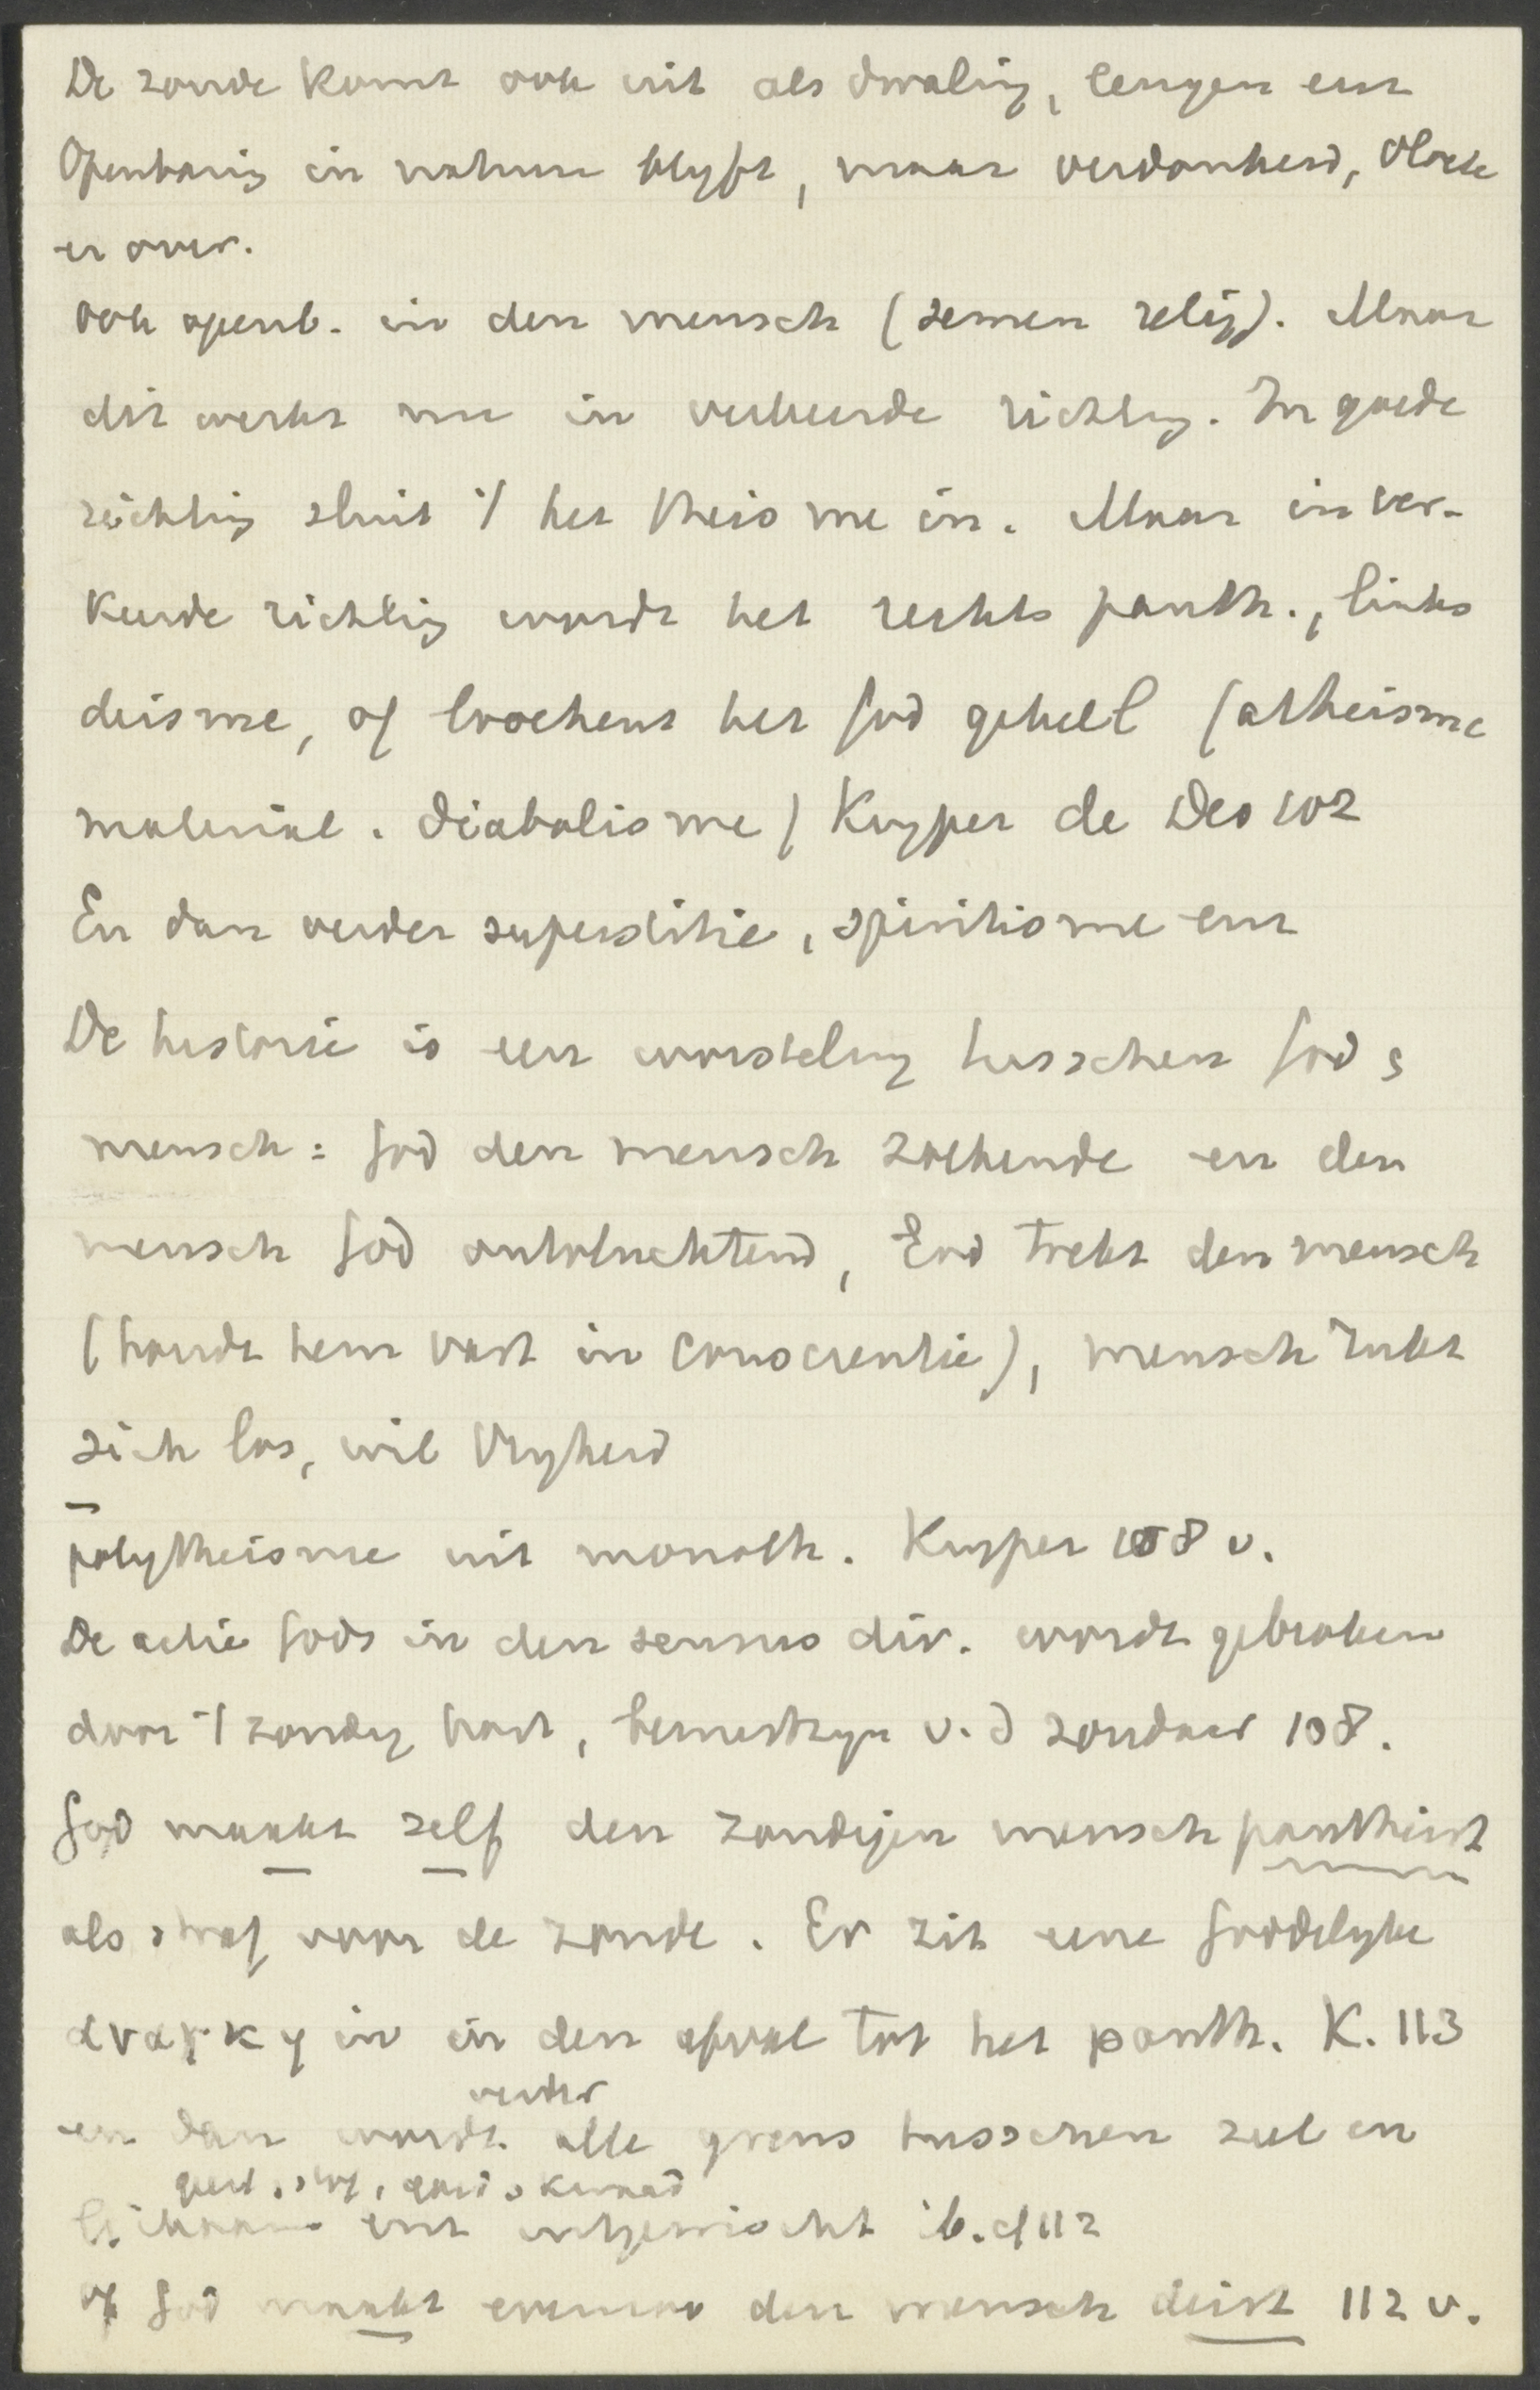 De zonde komt ook uit als dwaling, leugen enz
Openbaring in natuur blyft, maar verdonkerd, vloek
er over.
Ook openb. in den mensch (semen relig). Maar
dit werkt nu in verkeerde richting. In goede
richting sluit 't het theisme in. Maar in ver-
keerde richting wordt het rechts panth., links
deisme, of loochent het God geheel (atheisme
material. diabolisme) Kuyper de Deo 102
En dan verder superstitie, spiritisme enz
De historie is een worsteling tusschen God &
mensch: God den mensch zoekende en den
mensch God ontvluchtend, God trekt den mensch
(houdt hem vast in conscientie), mensch rukt
zich los, wil vryheid
polytheisme uit monoth. Kuyper 108 v.
De actie Gods in den sensus div. wordt gebroken
door 't zondig hart, bewustzyn v.d zondaar 108.
God maakt zelf den zondigen mensch pantheist
als straf voor de zonde. Er zit eene Goddelyke
αναγκη in in den afval tot het panth. K. 113
verder
en dan wordt alle grens tusschen ziel en
geest, stof, goed & kwaad
lichaam enz uitgewischt ib. cf 112
of God maakt evenzoo den mensch deist 112 v.